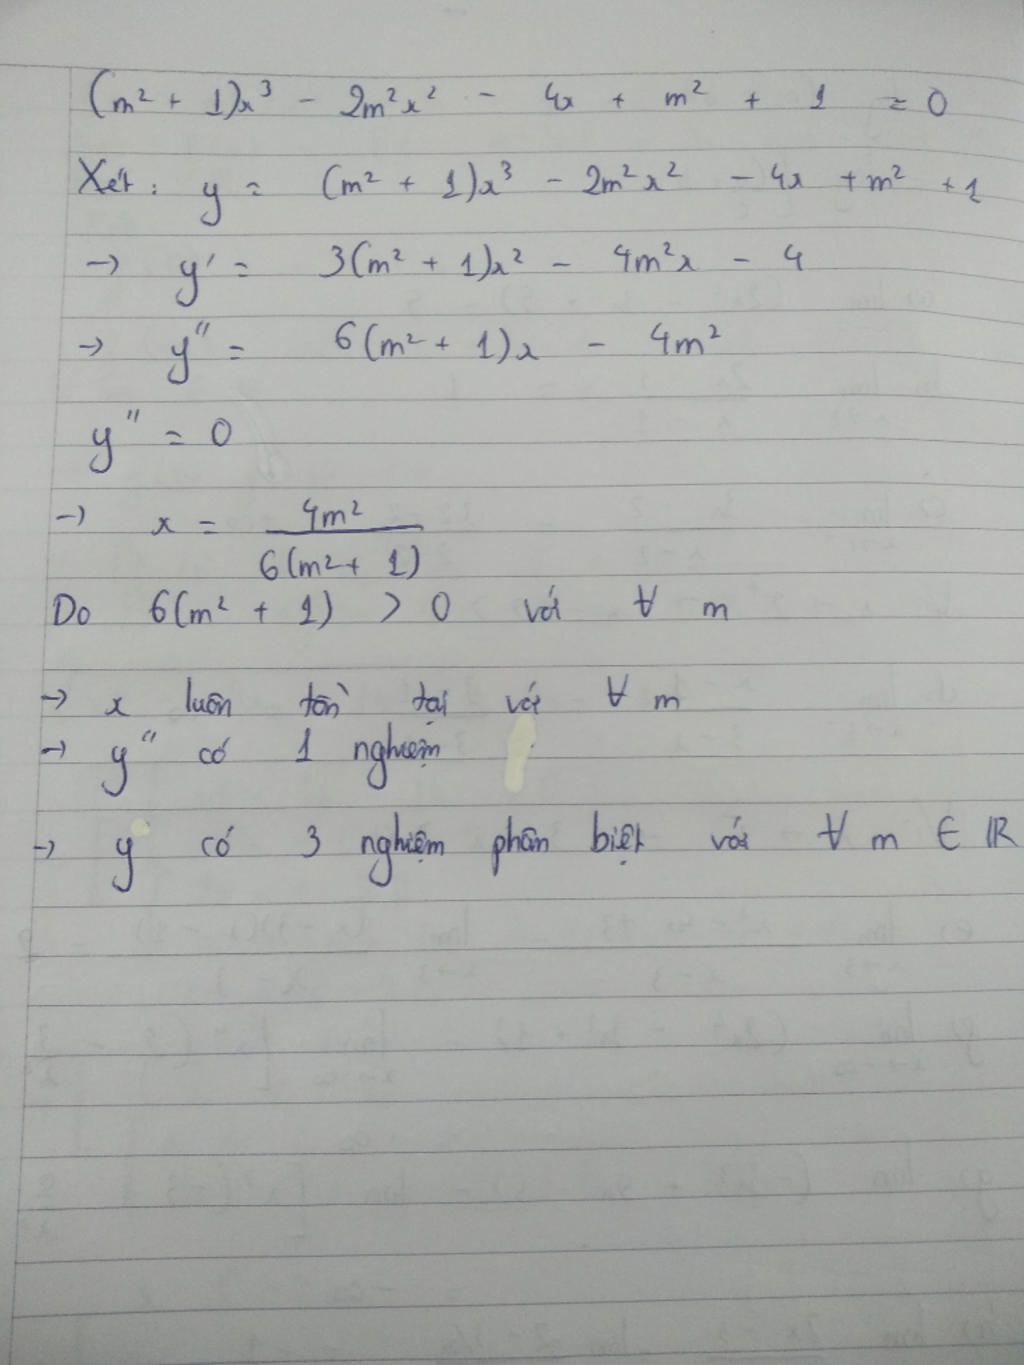 (m² + 1)x³ - 2m²x² - 4x + m² + 1 = 0
Xét: y = (m² + 1)x³ - 2m²x² - 4x + m² + 1
→ y' = 3(m² + 1)x² - 4m²x - 4
→ y'' = 6(m² + 1)x - 4m²
y'' = 0
→ x = 4m² / 6(m² + 1)
Do 6(m² + 1) > 0 với ∀ m
→ x luôn tồn tại với ∀ m
→ y'' có 1 nghiệm
→ y có 3 nghiệm phân biệt với ∀ m ∈ ℝ